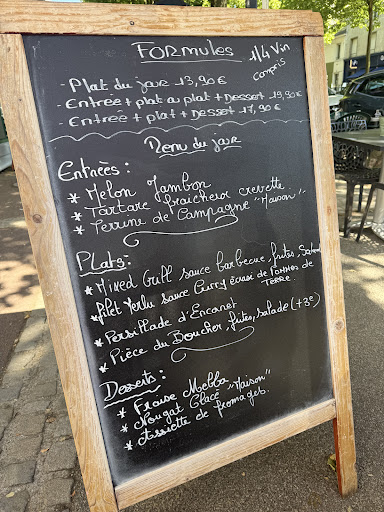 Formules
1/4 Vin
compris
- Plat du jour 13,90€
- Entrée + plat au plat + Dessert 19,90€
- Entrée + plat + Dessert - 17,90€
Menu du jour
Entrées :
* Melon Jambon
* Tartare fraicheur crevette.
* Terrine de Campagne "Maison".
Plats :
* Mixed Grill sauce barbecue, frites, Salade
* filet Merlu sauce Curry écrasé de Pommes de
Terre.
* Persillade d'Encornet
* Pièce du Boucher, frites, salade (+3€)
Desserts :
* Fraise Melba
* Nougat Glacé "Maison"
* Assiette de fromages.